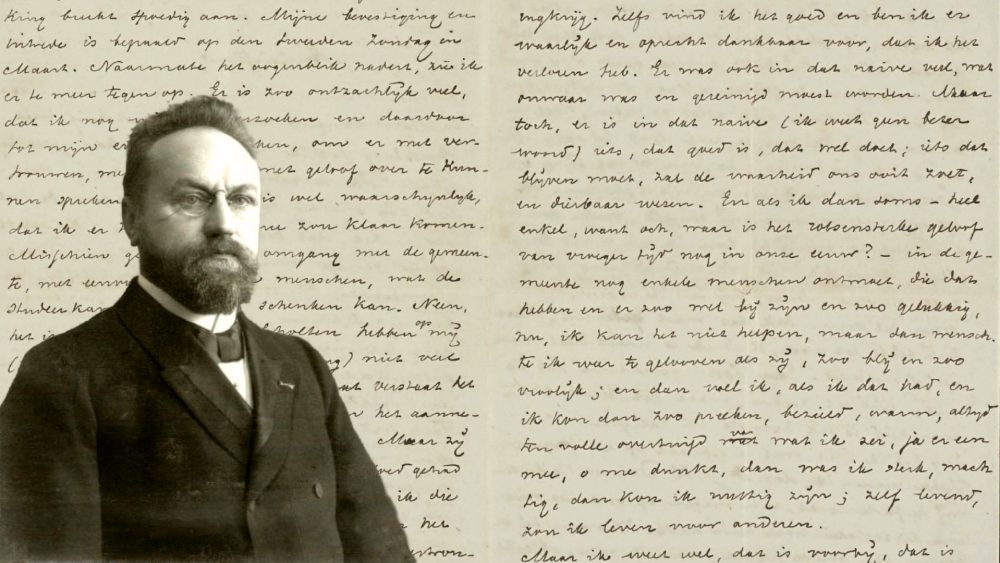 king breekt spoedig aan. Mijne bevestiging en
intrede is bepaald op den tweeden Zondag in
Maart. Naarmate het oogenblik nadert, zie ik
er te meer tegen op. Er is zoo ontzachlijk veel,
dat ik nog nzoeken en daardoor
tot mijn ei ken, om er met ver-
trouwen, me met geloof over te kun-
nen spreken is wel waarschijnlijk,
dat ik er zou klaar komen.
Misschien g omgang met de gemeen-
te, met eenvo menschen, wat de
studeerkam schenken kan. Neen,
het i holten hebben op mij
( ng) niet veel
verstaat het
het aanne-
Maar zij
oed gehad
ik die
het
ertron-
engkrijg. Zelfs vind ik het goed en ben ik er
waarlijk en oprecht dankbaar voor, dat ik het
verloren heb. Er was ook in dat naive veel, wat
onwaar was en gereinigd moest worden. Maar
toch, er is in dat naive (ik weet geen beter
woord) iets, dat goed is, dat wel doet; iets dat
blijven moet, zal de waarheid ons ooit zoet,
en dierbaar wezen. En als ik dan soms – heel
enkel, want och, waar is het rotsensterke geloof
van vroeger tijd nog in onze eeuw? – in de ge-
meente nog enkele menschen ontmoet, die dat
hebben en er zoo wel bij zijn en zoo gelukkig,
nu, ik kan het niet helpen, maar dan wensch-
te ik weer te gelooven als zij, zoo blij en zoo
vroolijk; en dan voel ik, als ik dat had, en
ik kon dan zoo preeken, bezield, warm, altijd
ten volle overtuigd van wat ik zei, ja er een
mee, o me dunkt, dan was ik sterk, mach-
tig, dan kon ik nuttig zijn; zelf levend,
zou ik leven voor anderen.
Maar ik weet wel, dat is voorbij, dat is